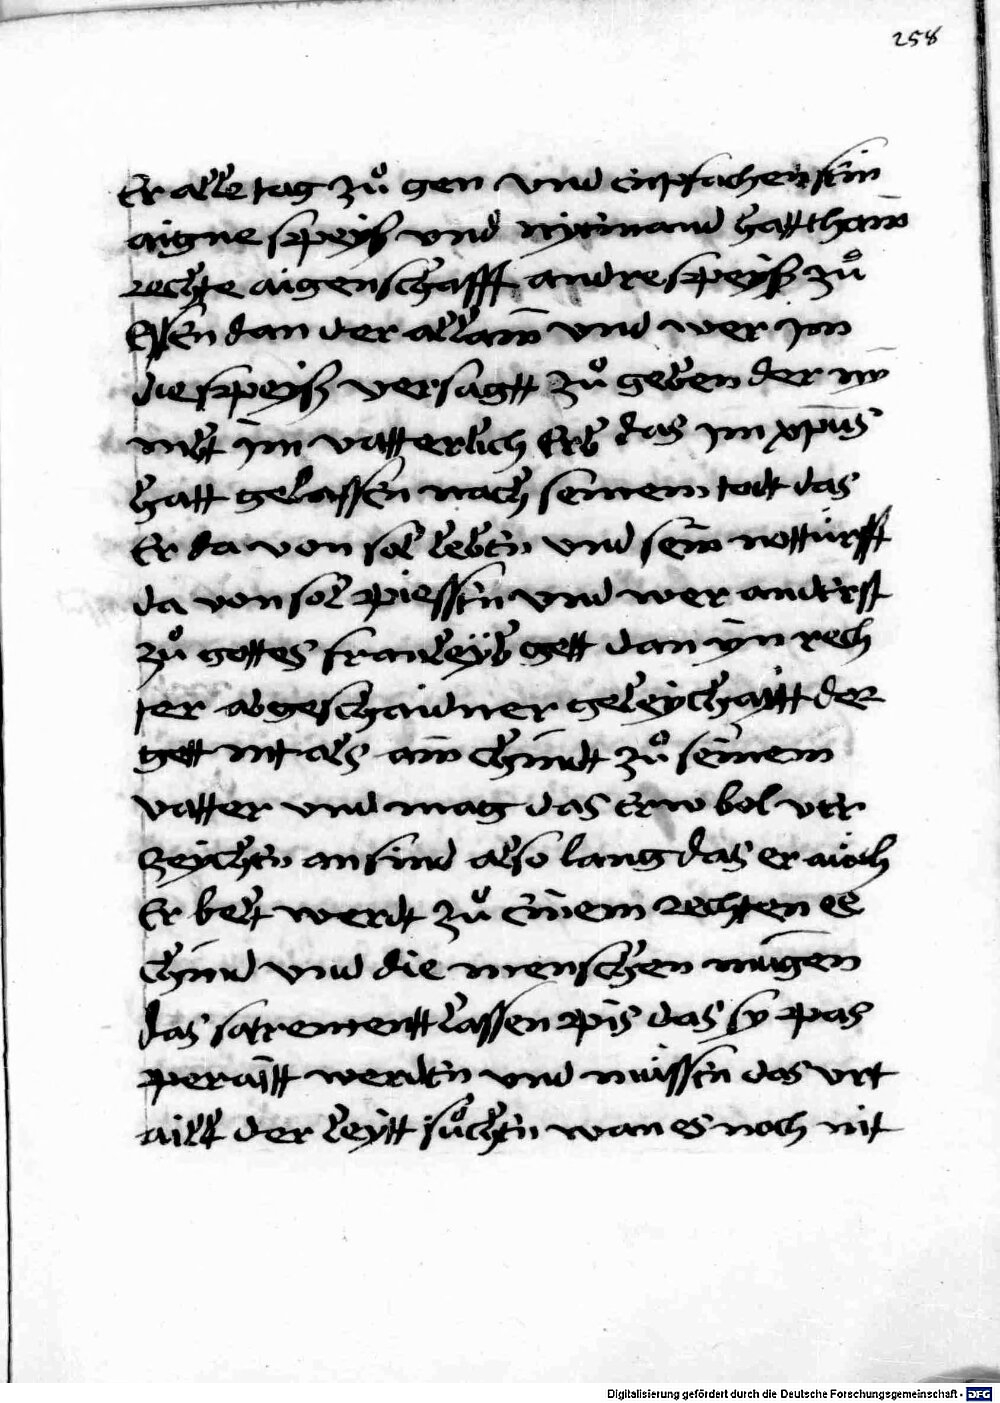 258
Er alle tag zů gen vnd enpfachen sein
aigne speyß vnd nyemand hatt kain
rechte aigenschafft andre speyß zů
Essen dan der allain vnd wer im
die speyß versagtt zů geben der ny
mbt im vatterlich Erb das im xp̄us
hatt gelassen nach seinem todt das
Er da von sol leben vnd sein notturfft
da von sol piessen vnd wer anderst
zů gottes franleyb gett dan yn rech
ter abgeschaidner geleychaitt der
gett nit als ain chindt zů seinem
vatter vnd mag das Er wol ver
zeychen an sind also lang das er auch
Er belt werdt zů einem rechten ee
chind vnd die menschen mugen
das sacrementt lassen pis das sy pas
peraitt werden vnd miessen das vrt
aill der leytt sůchen wan es noch nit
Digitalisierung gefördert durch die Deutsche Forschungsgemeinschaft - DFG